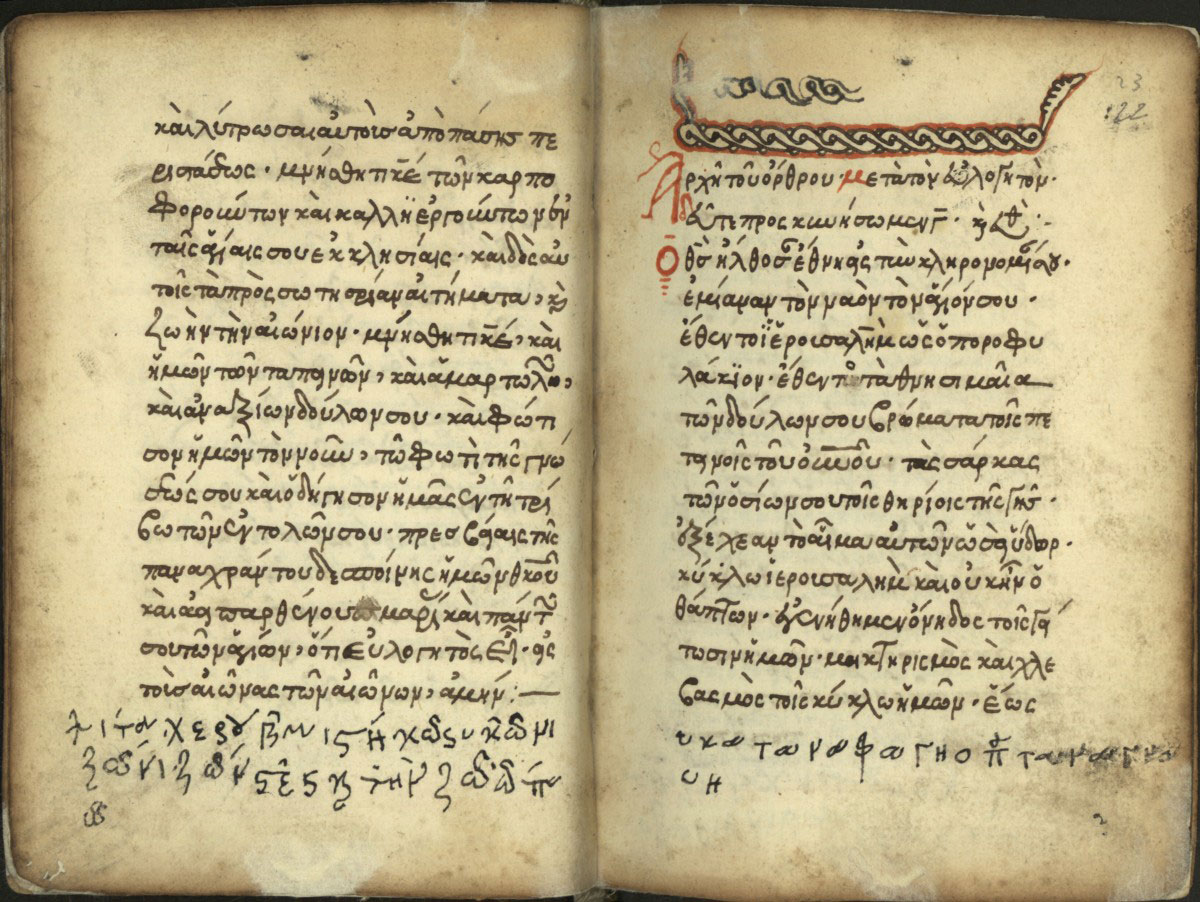 καὶ λύτρωσαι αὐτοὺς ἀπὸ πάσης πε
ριστάσεως · μνήσθητι κ̅ε̅ τῶν καρπο
φορούντων καὶ καλλϊεργούντων ἐν
ταῖς ἁγίαις σου ἐκκλησίαις · καὶ δὸς αὐ
τοῖς τὰ πρὸς σωτηρίαν αἰτήματα, κ̀
ζωὴν τὴν αἰώνιον · μνήσθητι κ̅ε̅, καὶ
ἡμῶν τῶν ταπεινῶν, καὶ ἁμαρτωλῶ,
καὶ ἀναξίων δούλων σου · καὶ φώτι
σον ἡμῶν τὸν νοῦν, τῶ φωτὶ τῆς γνώ
σεώς σου καὶ ὁδήγησον ἡμᾶς ἐν τῆ τρί
βω τῶν ἐντολῶν σου · πρεσβείαις τῆς
παναχράντου δεσποίνης ἡμῶν θ̅κ̅ου
καὶ ἀειπαρθένου μαρί καὶ πάντ
σου τῶν ἁγίων, ὅτι εὐλογητὸς εἶ · εἰς
τοὺς αἰῶνας τῶν αἰώνων, ἀμήν :—
Ἀρχὴ τοῦ ὄρθρου μετὰ τὸν εὐλογητὸν ·
δεῦτε προσκυνήσωμεν γ̅ ·
Ὁ θ̅ς̅ ἤλθοσαν ἔθνη εἰς τὴν κληρονομίαν σου ·
ἐμίαναν τὸν ναὸν τὸν ἅγιόν σου ·
ἔθεντο ἱ̈ερουσαλὴμ ὡς ὀπωροφυ
λάκϊον · ἔθεντο τὰ θνησιμαῖα
τῶν δούλων σου βρώματα τοῖς πε
τεινοῖς τοῦ ο̅υ̅ν̅ου̅ · τὰς σάρκας
τῶν ὁσίων σου τοῖς θηρίοις τῆς γῆς ·
ἐξέχεαν τὸ αἷμα αὐτῶν ὡσεὶ ὕδωρ ·
κύκλω ἱερουσαλὴμ καὶ οὐκ ἦν ὁ
θάπτων · ἐγενήθημεν ὄνειδος τοῖς γεί
τοσιν ἡμῶν · μυκτηρισμὸς καὶ χλε
βασμὸς τοῖς κύκλω ἡμῶν · ἕως